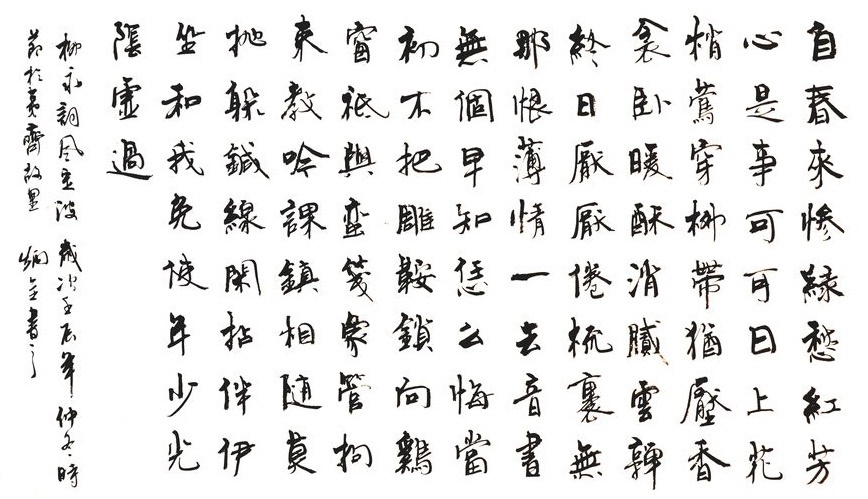 自春來慘緑愁紅芳
心是事可可日上花
梢鶯穿柳帶猶壓香
衾卧暖酥消膩雲嚲
終日厭厭倦梳裹無
那恨薄情一去音書
無個早知恁么悔當
初不把雕鞍鎖向鷄
窗祇與蠻箋象管拘
束教吟課鎮相隨莫
抛躲鍼線閑拈伴伊
坐和我免使年少光
陰虛過
柳永詞風波 歲次壬辰年仲冬時
節於夷齊故里 炳金書之